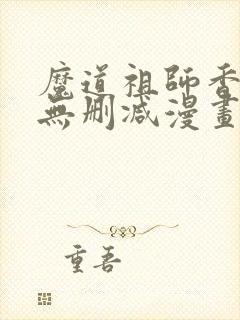 魔道祖師香
無刪减漫畫
重吾